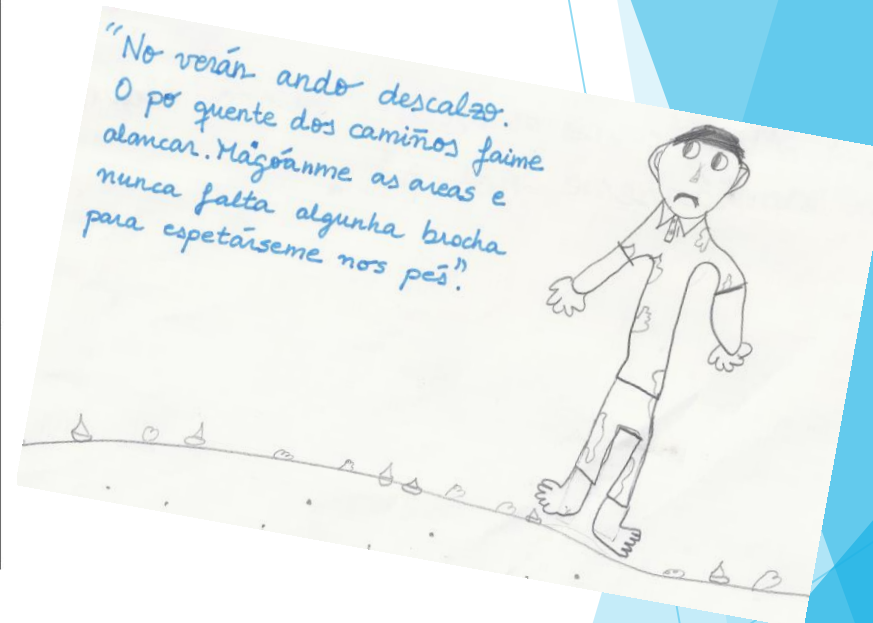 "No verán ando descalzo.
O po quente dos camiños faime
alancar. Magóanme as areas e
nunca falta algunha brocha
para espetárseme nos pés".